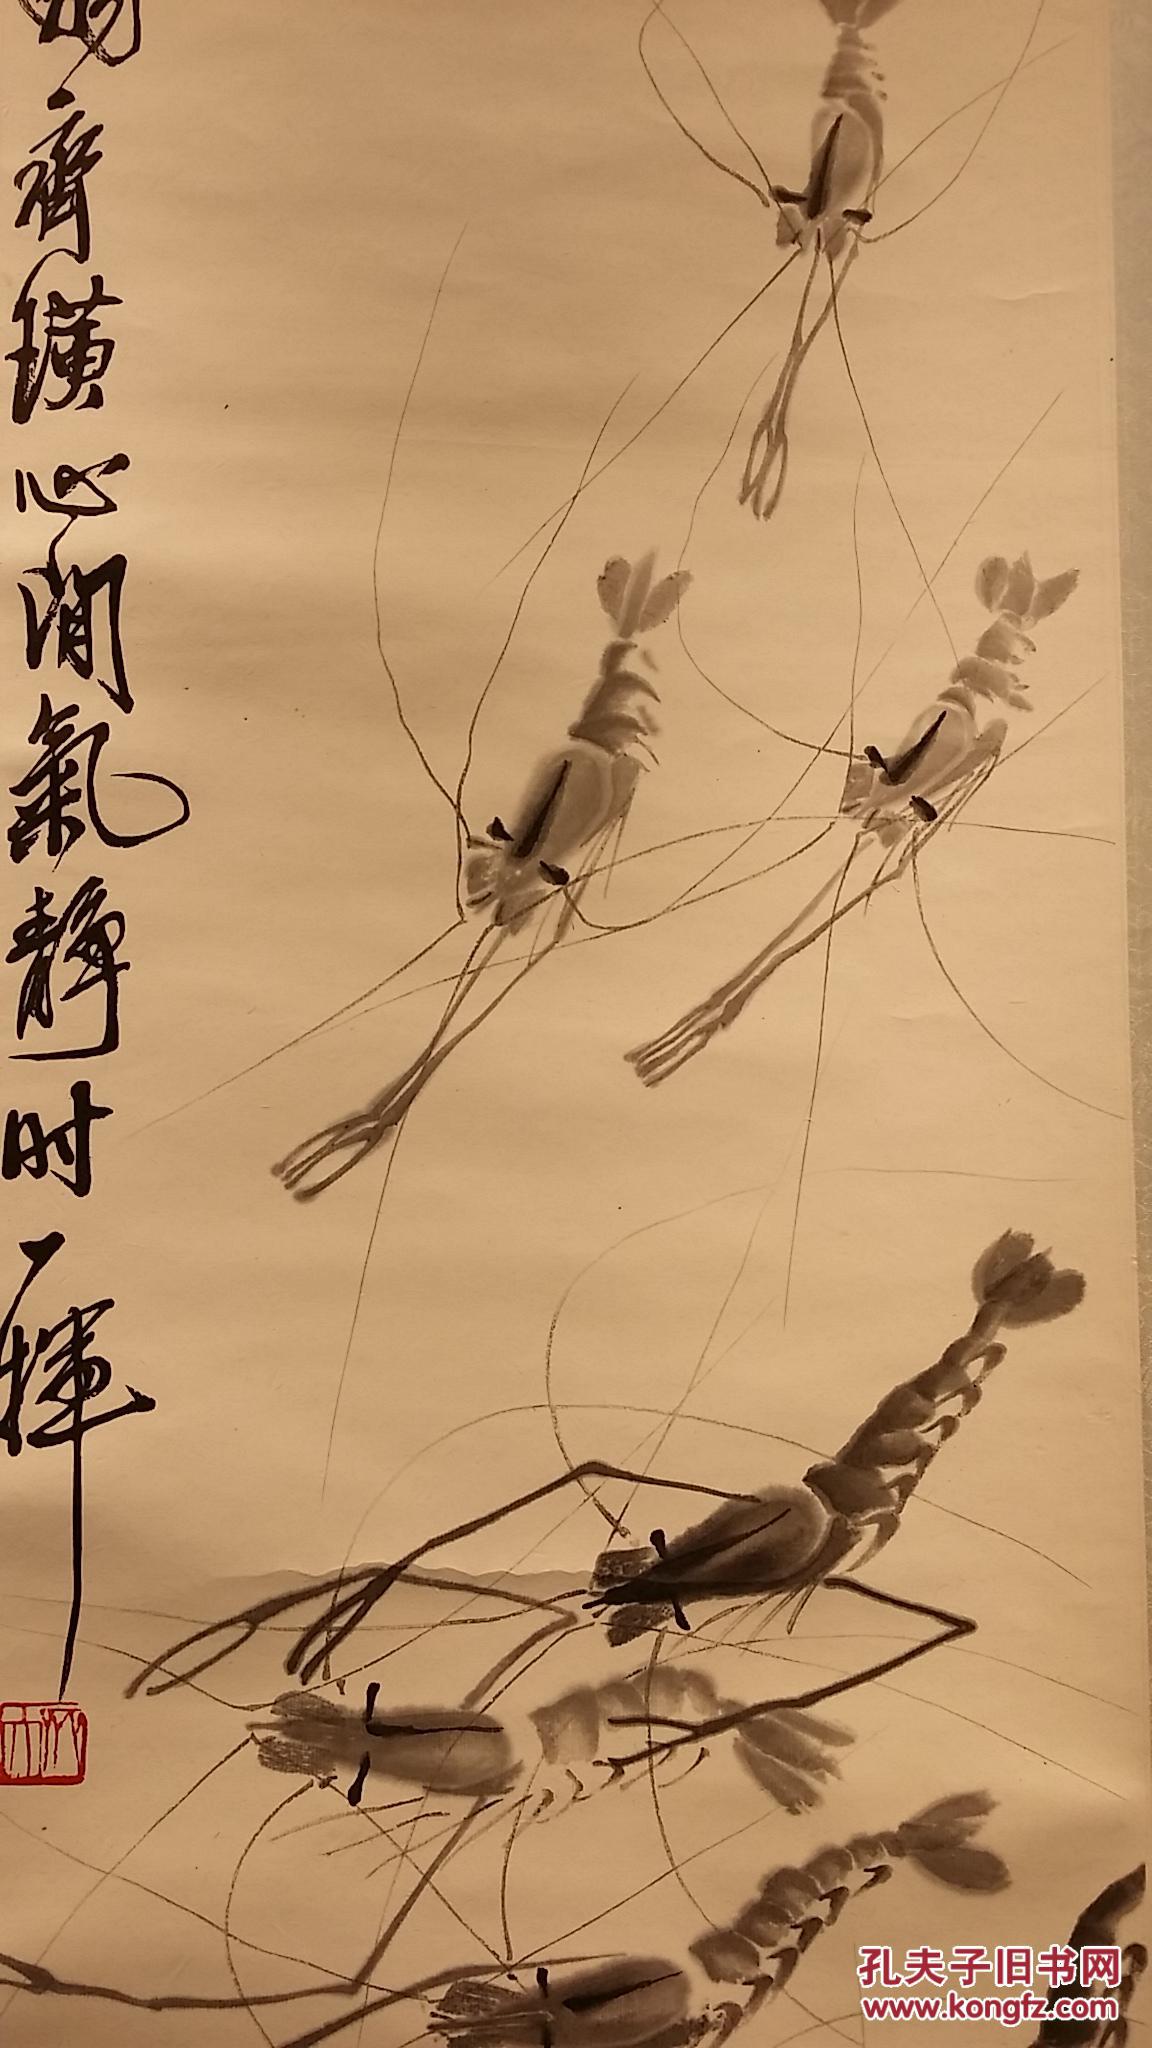 齊璜心閒氣靜时一揮
孔夫子旧书网
www.kongfz.com